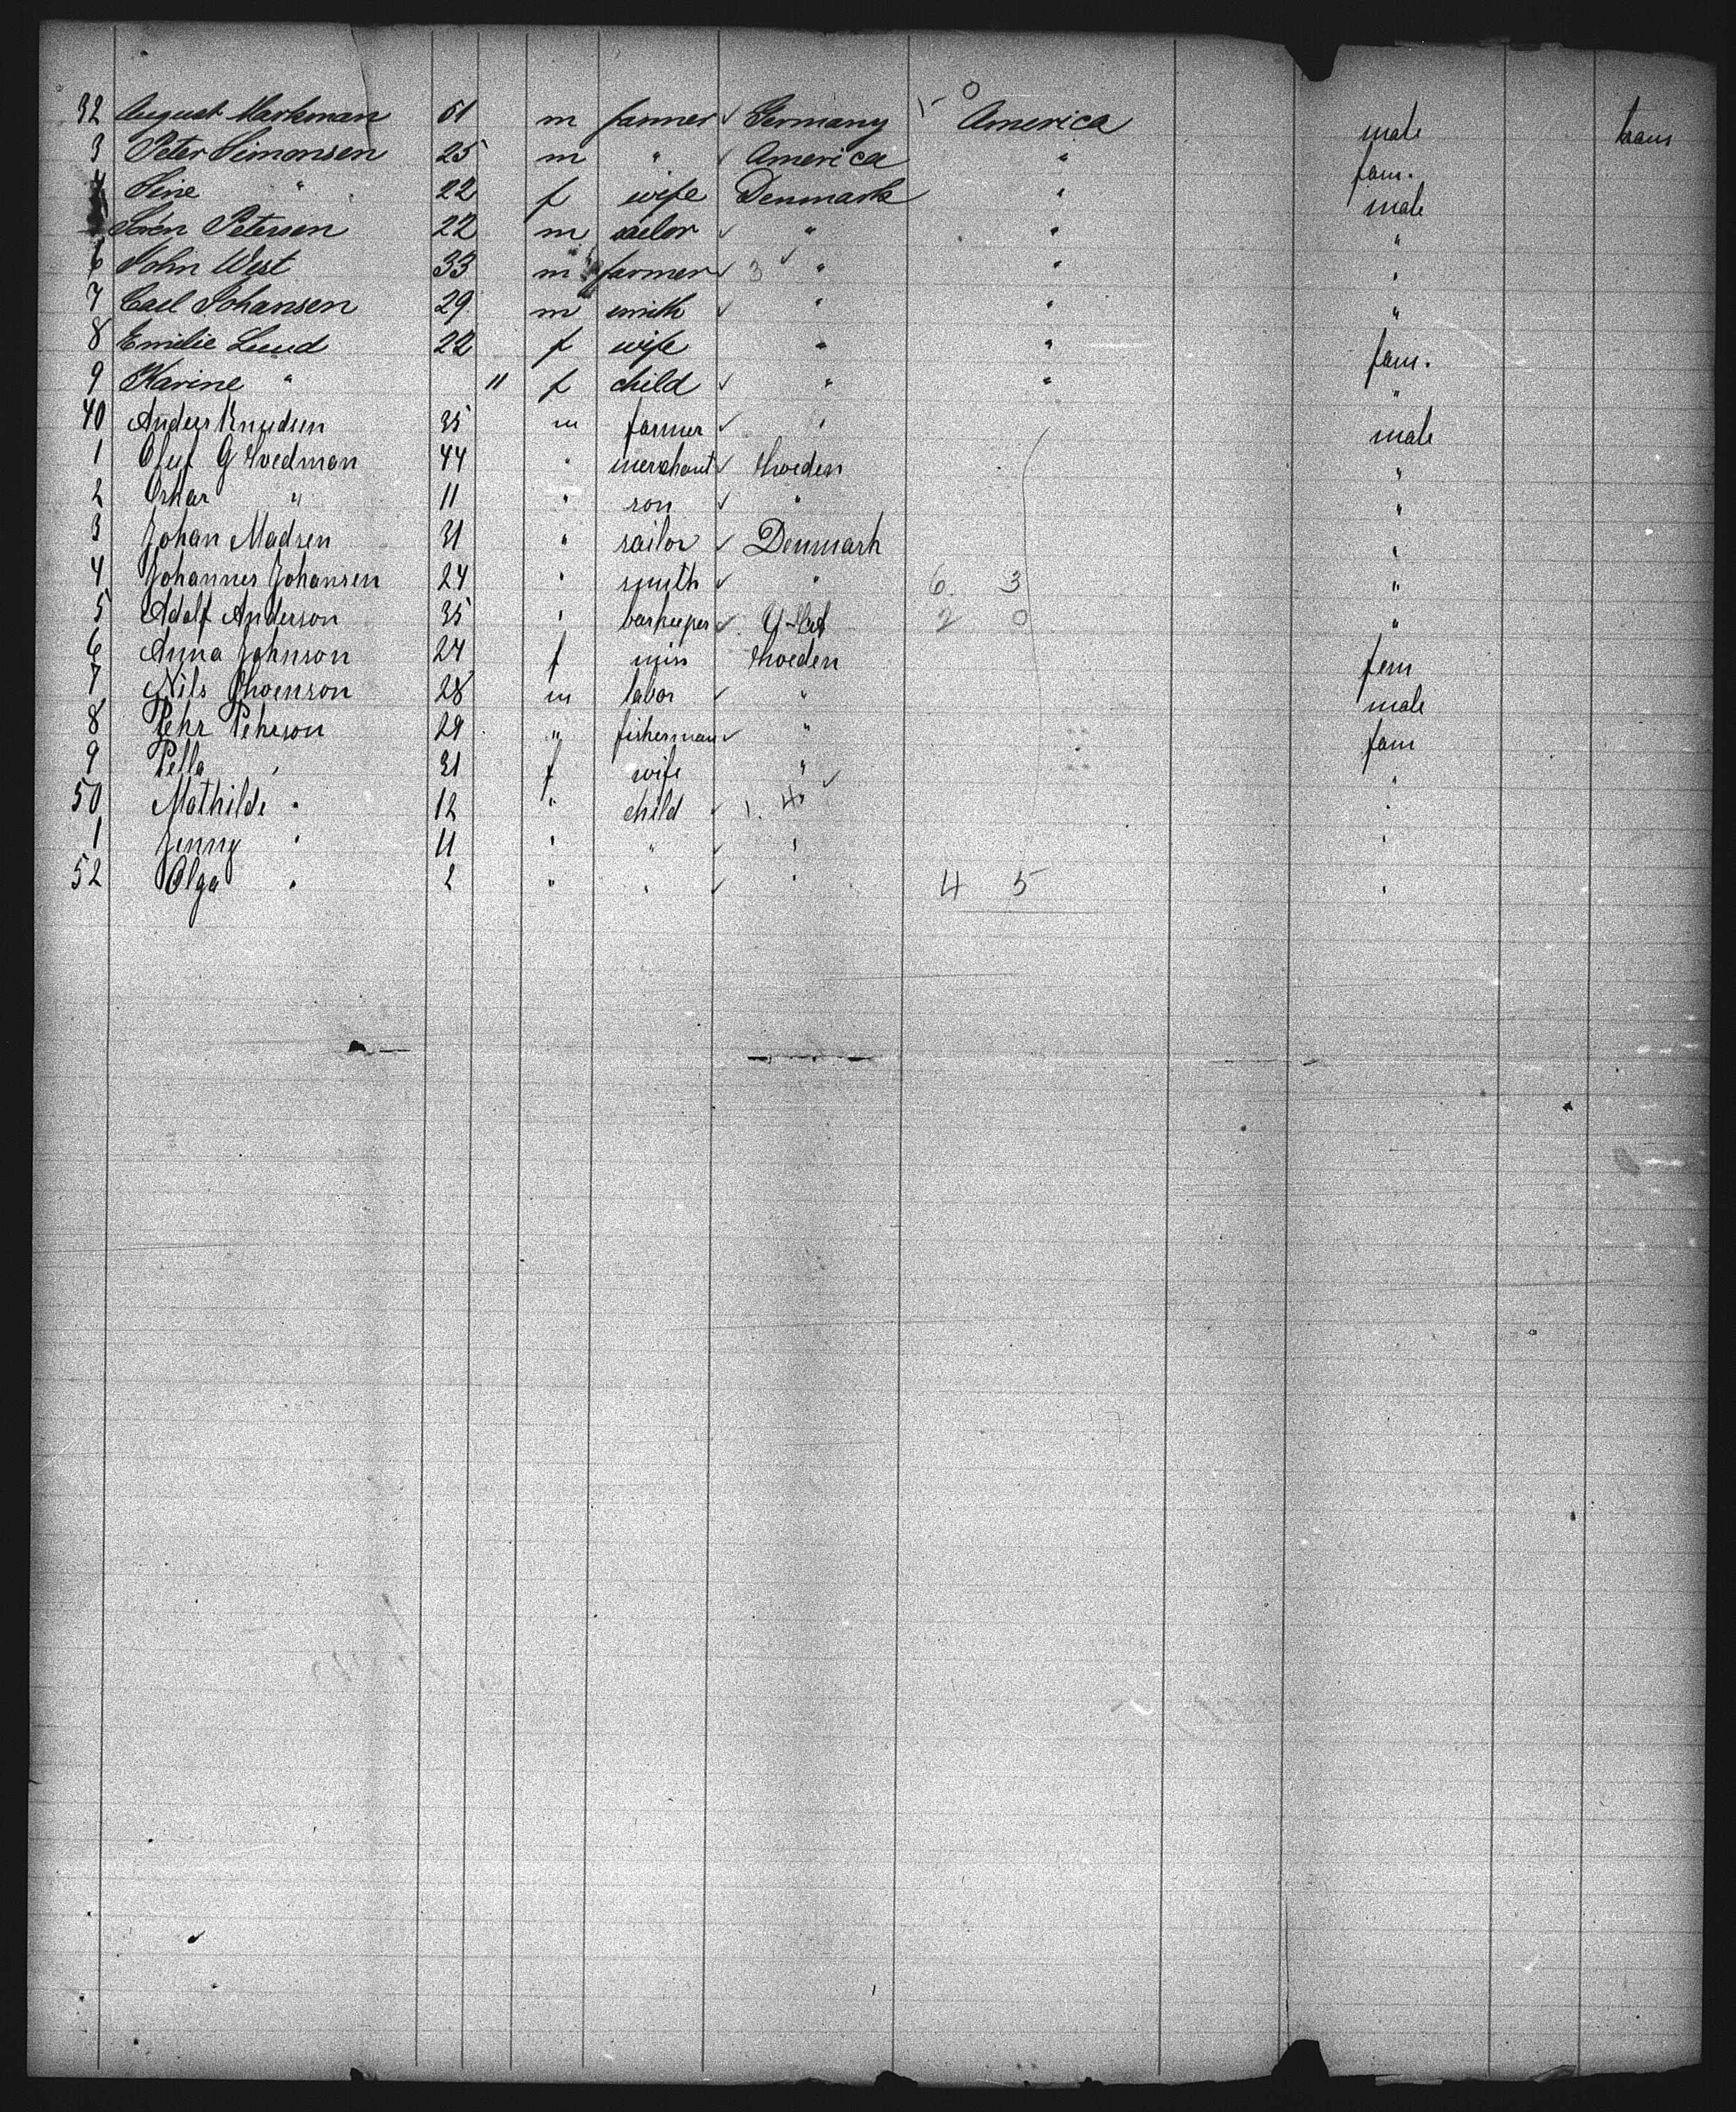 32 August Markman 61 m farmer ✓ Germany 1 - 0 America male trans
3 Peter Simonsen 25 m " ✓ America " fam.
4 Sine " 22 f wife Denmark " male
Sören Petersen 22 m ✓ " " "
6 John West 33 m farmer ✓ 3 " " "
7 Carl Johansen 29 m smith ✓ " " "
8 Emilie Lund 22 f wife " " fam.
9 Karine " 11 f child ✓ " " "
40 Anders Knudsen 35 m farmer ✓ " male
1 Oluf G Svedman 44 " merchant ✓ Sweden "
2 Oskar " 11 " son ✓ " "
3 Johan Madsen 31 " sailor ✓ Denmark "
4 Johannes Johansen 24 " smith ✓ " 6 3 "
5 Adolf Anderson 35 " barkeeper ✓ 2 0 "
6 Anna Johnson 24 f miss Sweden fem
7 Nils 28 m labor ✓ " male
8 Pehr Pehrson 29 " fisherman ✓ " fam
9 Pella " 31 f wife " ✓ "
50 Mathilde " 12 " child ✓ 1. 4 " "
1 Jenny " 11 " " ✓ " "
52 Olga " 2 " " ✓ " 4 5 "